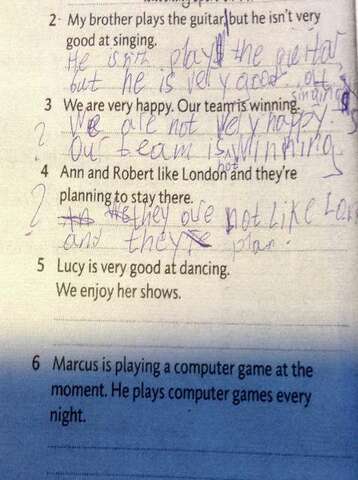 2 My brother plays the guitar but he isn't very
good at singing.
He isn't plays the
but he is very good at
singing
3 We are very happy. Our team is winning.
? We are not very happy
Our team is winning
not
4 Ann and Robert like London and they're
planning to stay there.
? they are not like Lon
and they're plan.
5 Lucy is very good at dancing.
We enjoy her shows.
6 Marcus is playing a computer game at the
moment. He plays computer games every
night.